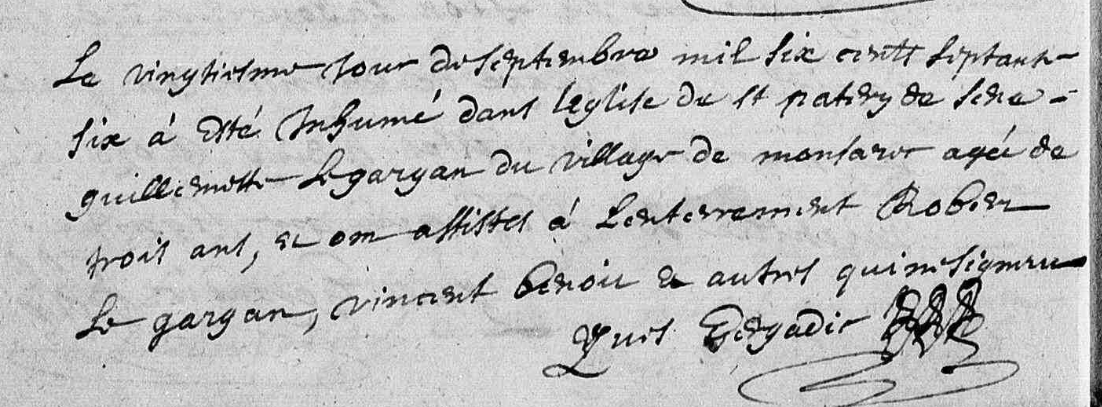 Le vingtiesme Jour de septembre mil six cents septante
six à esté Inhumé dans leglise de st patery de sene
guillemette Le gargan du village de monsarec agée de
trois ans, et om assistes á Lenterrement Rober
Le gargan, vincent benoir et autres qui ne signeru
Yues